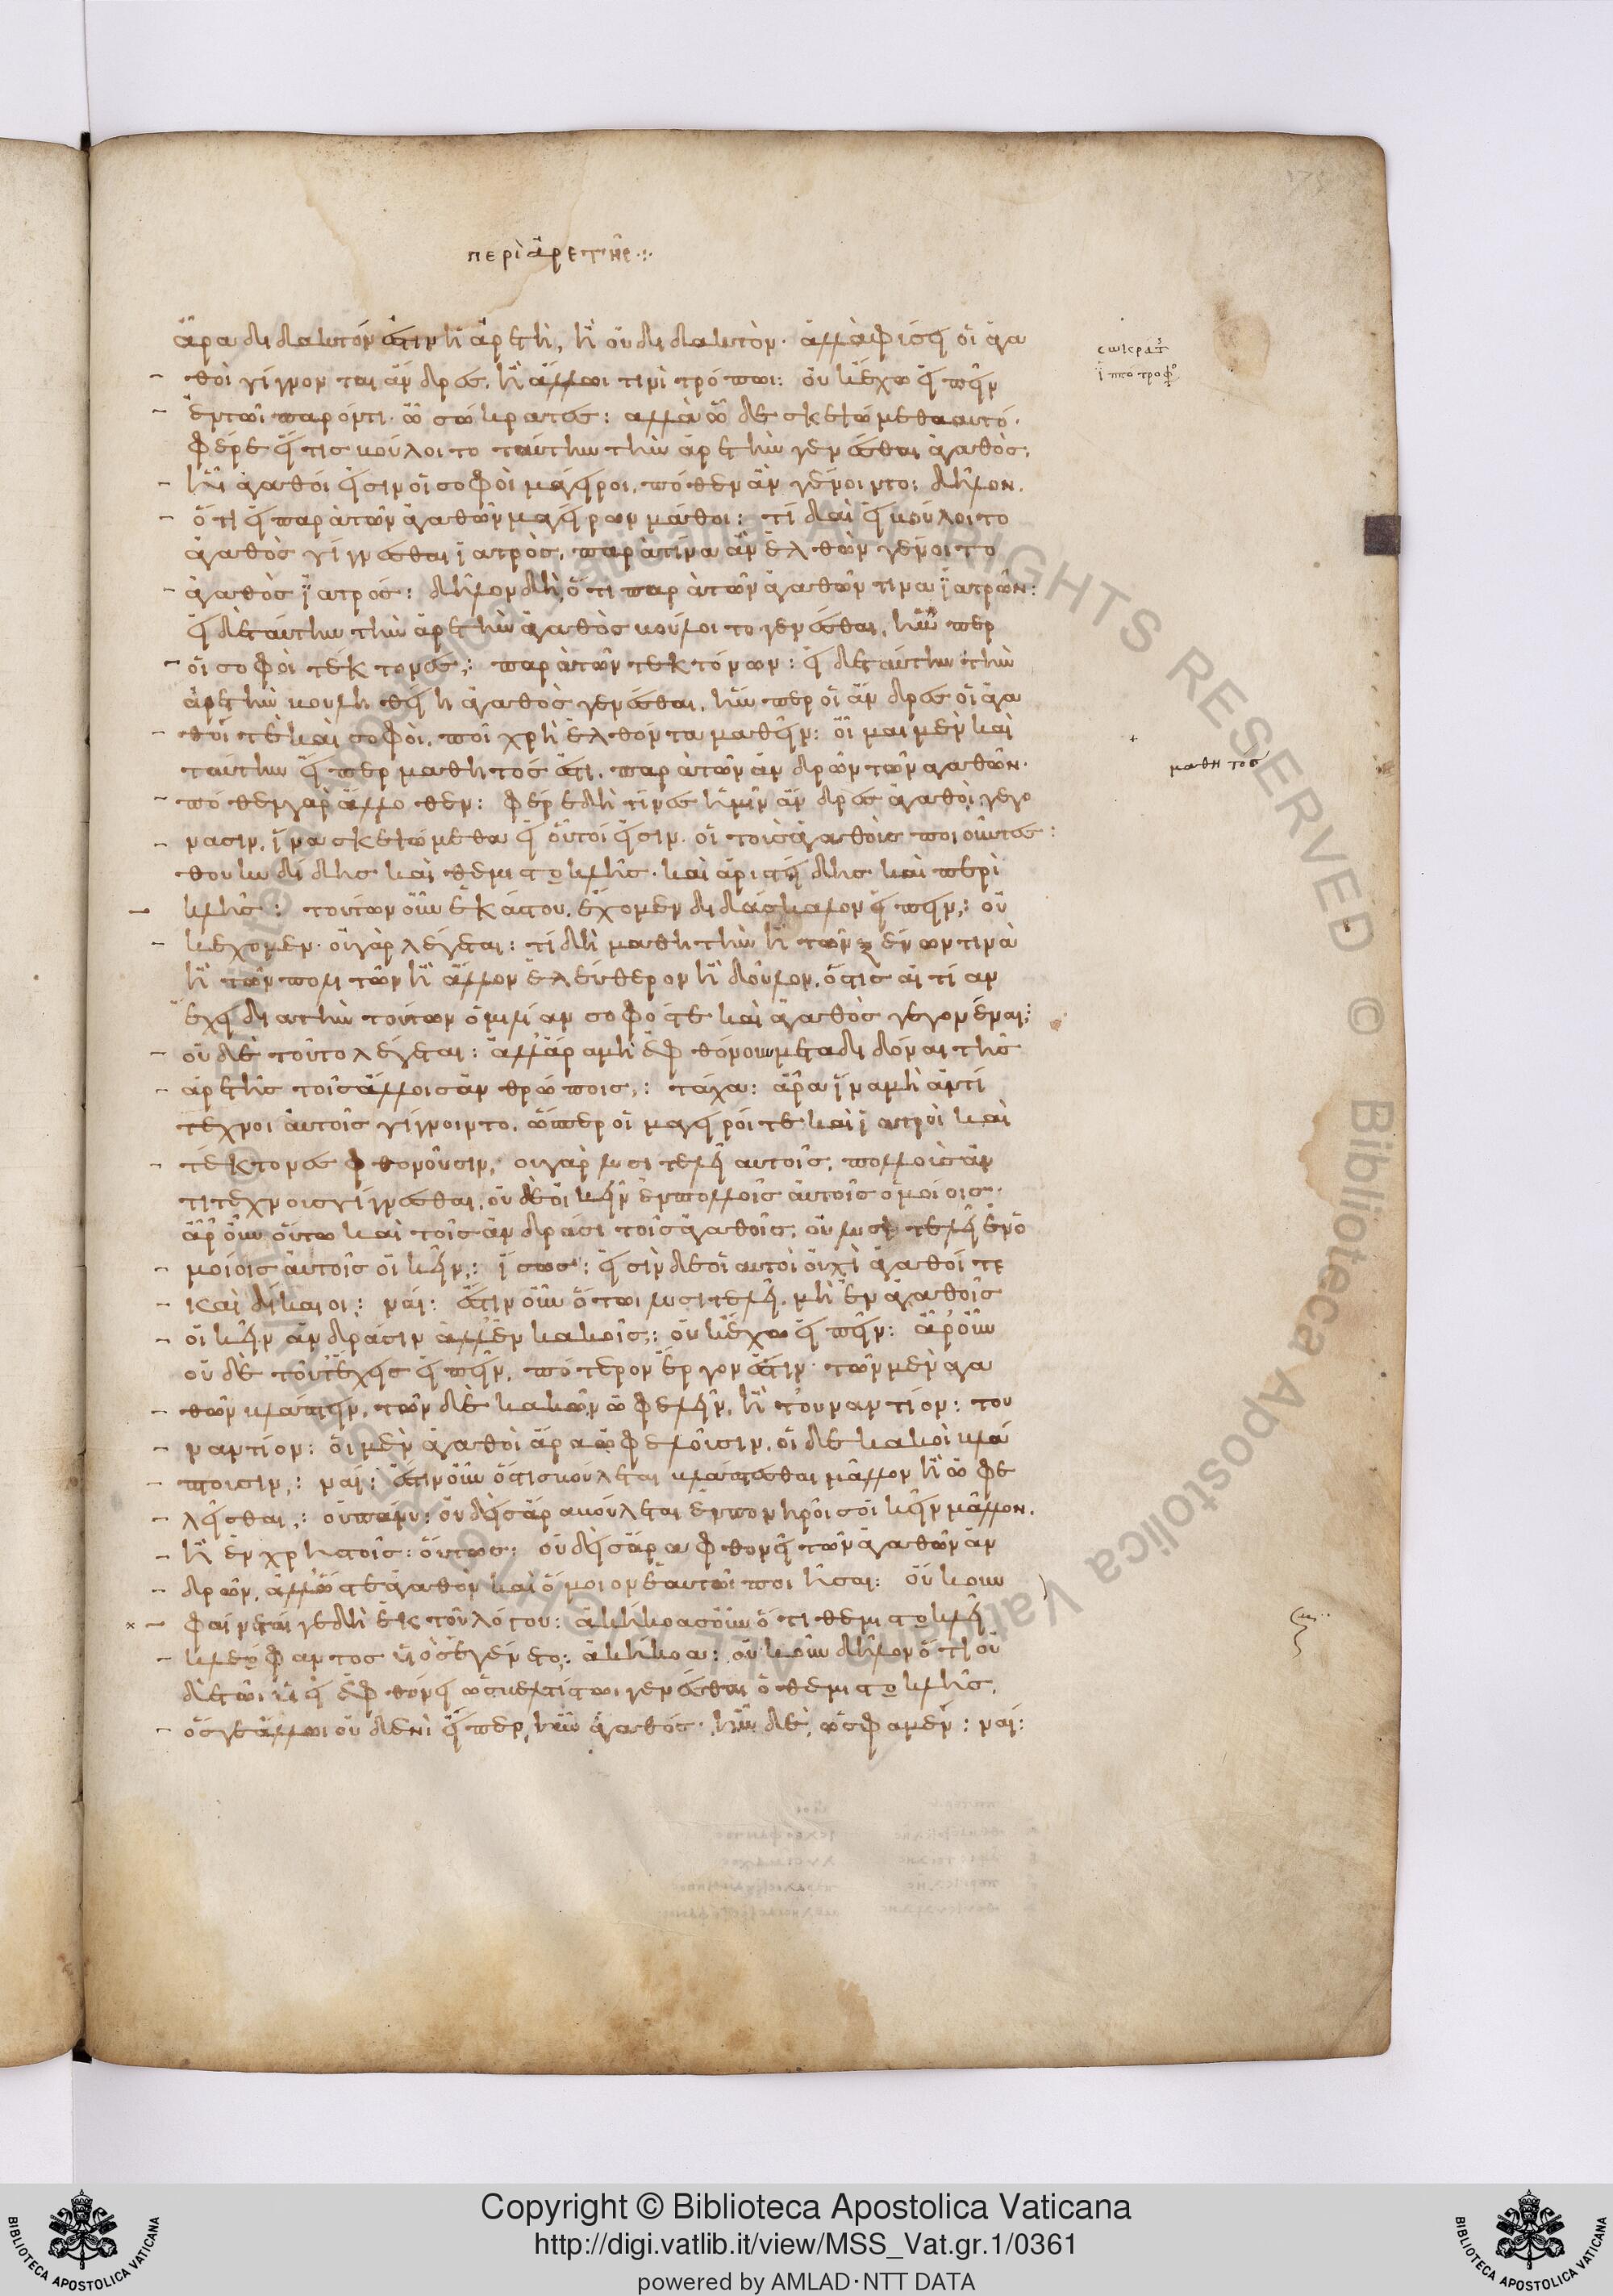 περὶ ἀρετῆς
ἆρα διδακτόν ἐστιν ἡ ἀρετὴ, ἢ οὐ διδακτὸν· ἀλλὰ φύσει οἱ ἀγα
θοὶ γίγνονται ἄνδρες, ἢ ἄλλωι τινὶ τρόπωι: οὐκ ἔχω εἰπεῖν
ἐν τῶι παρόντι· ὦ σώκρατες: ἀλλὰ ὧδε σκεψώμεθα αὐτό·
φέρε εἴ τις βούλοιτο ταύτην τὴν ἀρετὴν γενέσθαι ἀγαθὸς,
ἣν ἀγαθοί εἰσιν οἱ σοφοὶ μάγειροι, πόθεν ἂν γένοιτο: δῆλον.
ὅτι εἰ παρὰ τῶν ἀγαθῶν μαγείρων μάθοι: τί δαὶ εἰ βούλοιτο
ἀγαθὸς γίγνεσθαι ἰατρὸς, παρὰ τίνα ἂν ἐλθὼν γένοιτο
ἀγαθὸς ἰατρός: δῆλον δὴ, ὅτι παρὰ τῶν ἀγαθῶν τινα ἰατρῶν:
εἰ δὲ ταύτην τὴν ἀρετὴν ἀγαθὸς βούλοιτο γενέσθαι, ἥνπερ
οἱ σοφοὶ τέκτονες: παρὰ τῶν τεκτόνων: εἰ δὲ ταύτην τὴν
ἀρετὴν βουληθείη ἀγαθὸς γενέσθαι, ἥνπερ οἱ ἄνδρες οἱ ἀγα
θοί τε καὶ σοφοὶ, ποῖ χρὴ ἐλθόντα μαθεῖν: οἶμαι μὲν καὶ
ταύτην εἴπερ μαθητός ἐστι, παρὰ τῶν ἀνδρῶν τῶν ἀγαθῶν·
πόθεν γὰρ ἄλλοθεν: φέρε δὴ τίνες ἡμῖν ἄνδρες ἀγαθοὶ γεγό
νασιν, ἵνα σκεψώμεθα εἰ οὗτοί εἰσιν οἱ τοὺς ἀγαθοὺς ποιοῦντες:
θουκυδίδης καὶ θεμιστοκλῆς· καὶ ἀριστείδης καὶ περι
κλῆς: τούτων οὖν ἑκάστου, ἔχομεν διδάσκαλον εἰπεῖν: οὐ
κ ἔχομεν· οὐ γὰρ λέγεται: τί δὴ μαθητὴν ἢ τῶν ξένων τινὰ
ἢ τῶν πολιτῶν ἢ ἄλλον ἐλεύθερον ἢ δοῦλον, ὅστις αἰτίαν
ἔχει διὰ τὴν τούτων ὁμιλίαν σοφός τε καὶ ἀγαθὸς γεγονέναι:
οὐδὲ τοῦτο λέγεται: ἀλλ' ἆρα μὴ ἐφθόνουν μεταδιδόναι τῆς
ἀρετῆς τοῖς ἄλλοις ἀνθρώποις: τάχα: ἆρα ἵνα μὴ ἀντί
τεχνοι αὐτοῖς γίγνοιντο, ὥσπερ οἱ μάγειροί τε καὶ ἰατροὶ καὶ
τέκτονες φθονοῦσιν, οὐ γὰρ λυσιτελεῖ αὐτοῖς, πολλοὺς ἀν
τιτέχνους γίγνεσθαι, οὐδὲ οἰκεῖν ἐν πολλοῖς αὐτοῖς ὁμοίοις·
ἆρ' οὖν οὕτω καὶ τοῖς ἀνδράσι τοῖς ἀγαθοῖς, οὐ λυσιτελεῖ ἐν ὁ
μοίοις αὐτοῖς οἰκεῖν: ἴσως: εἰσὶν δὲ οἱ αὐτοὶ οὐχὶ ἀγαθοί τε
καὶ δίκαιοι: ναί: ἔστιν οὖν ὅτωι λυσιτελεῖ, μὴ ἐν ἀγαθοῖς
οἰκεῖν ἀνδράσιν ἀλλ' ἐν κακοῖς: οὐκ ἔχω εἰπεῖν: ἆρ' οὖν
οὐδὲ τοῦτ' ἔχεις εἰπεῖν, πότερον ἔργον ἐστὶν· τῶν μὲν ἀγα
θῶν βλάπτειν, τῶν δὲ κακῶν ὠφελεῖν, ἢ τοὐναντίον: του
ναντίον: οἱ μὲν ἀγαθοὶ ἄρα ὠφελοῦσιν, οἱ δὲ κακοὶ βλά
πτουσιν: ναί: ἔστιν οὖν ὅστις βούλεται βλάπτεσθαι μᾶλλον ἢ ὠφε
λεῖσθαι: οὐ πάνυ: οὐδεὶς ἄρα βούλεται ἐν πονηροῖς οἰκεῖν μᾶλλον.
ἢ ἐν χρηστοῖς: οὕτως: οὐδεὶς ἄρα φθονεῖ τῶν ἀγαθῶν ἀν
δρῶν, ἄλλωι ὥστε ἀγαθὸν καὶ ὅμοιον ἑαυτῶι ποιῆσαι: οὔκουν
φαίνεταί γε δὴ ἐκ τοῦ λόγου: ἀκήκοας οὖν ὅτι θεμιστοκλεῖ
κλεόφαντος ὑὸς ἐγένετο: ἀκήκοα: οὐκοῦν δῆλον ὅτι οὐ
δὲ τῶι ὑεῖ ἐφθόνει ὡς βελτίστωι γενέσθαι ὁ θεμιστοκλῆς,
ὅς γε ἄλλωι οὐδενὶ εἴπερ, ἦν ἀγαθός· ἦν δὲ, ὥς φαμεν: ναί:
μαθητος
Copyright © Biblioteca Apostolica Vaticana
http://digi.vatlib.it/view/MSS_Vat.gr.1/0361
powered by AMLAD·NTT DATA